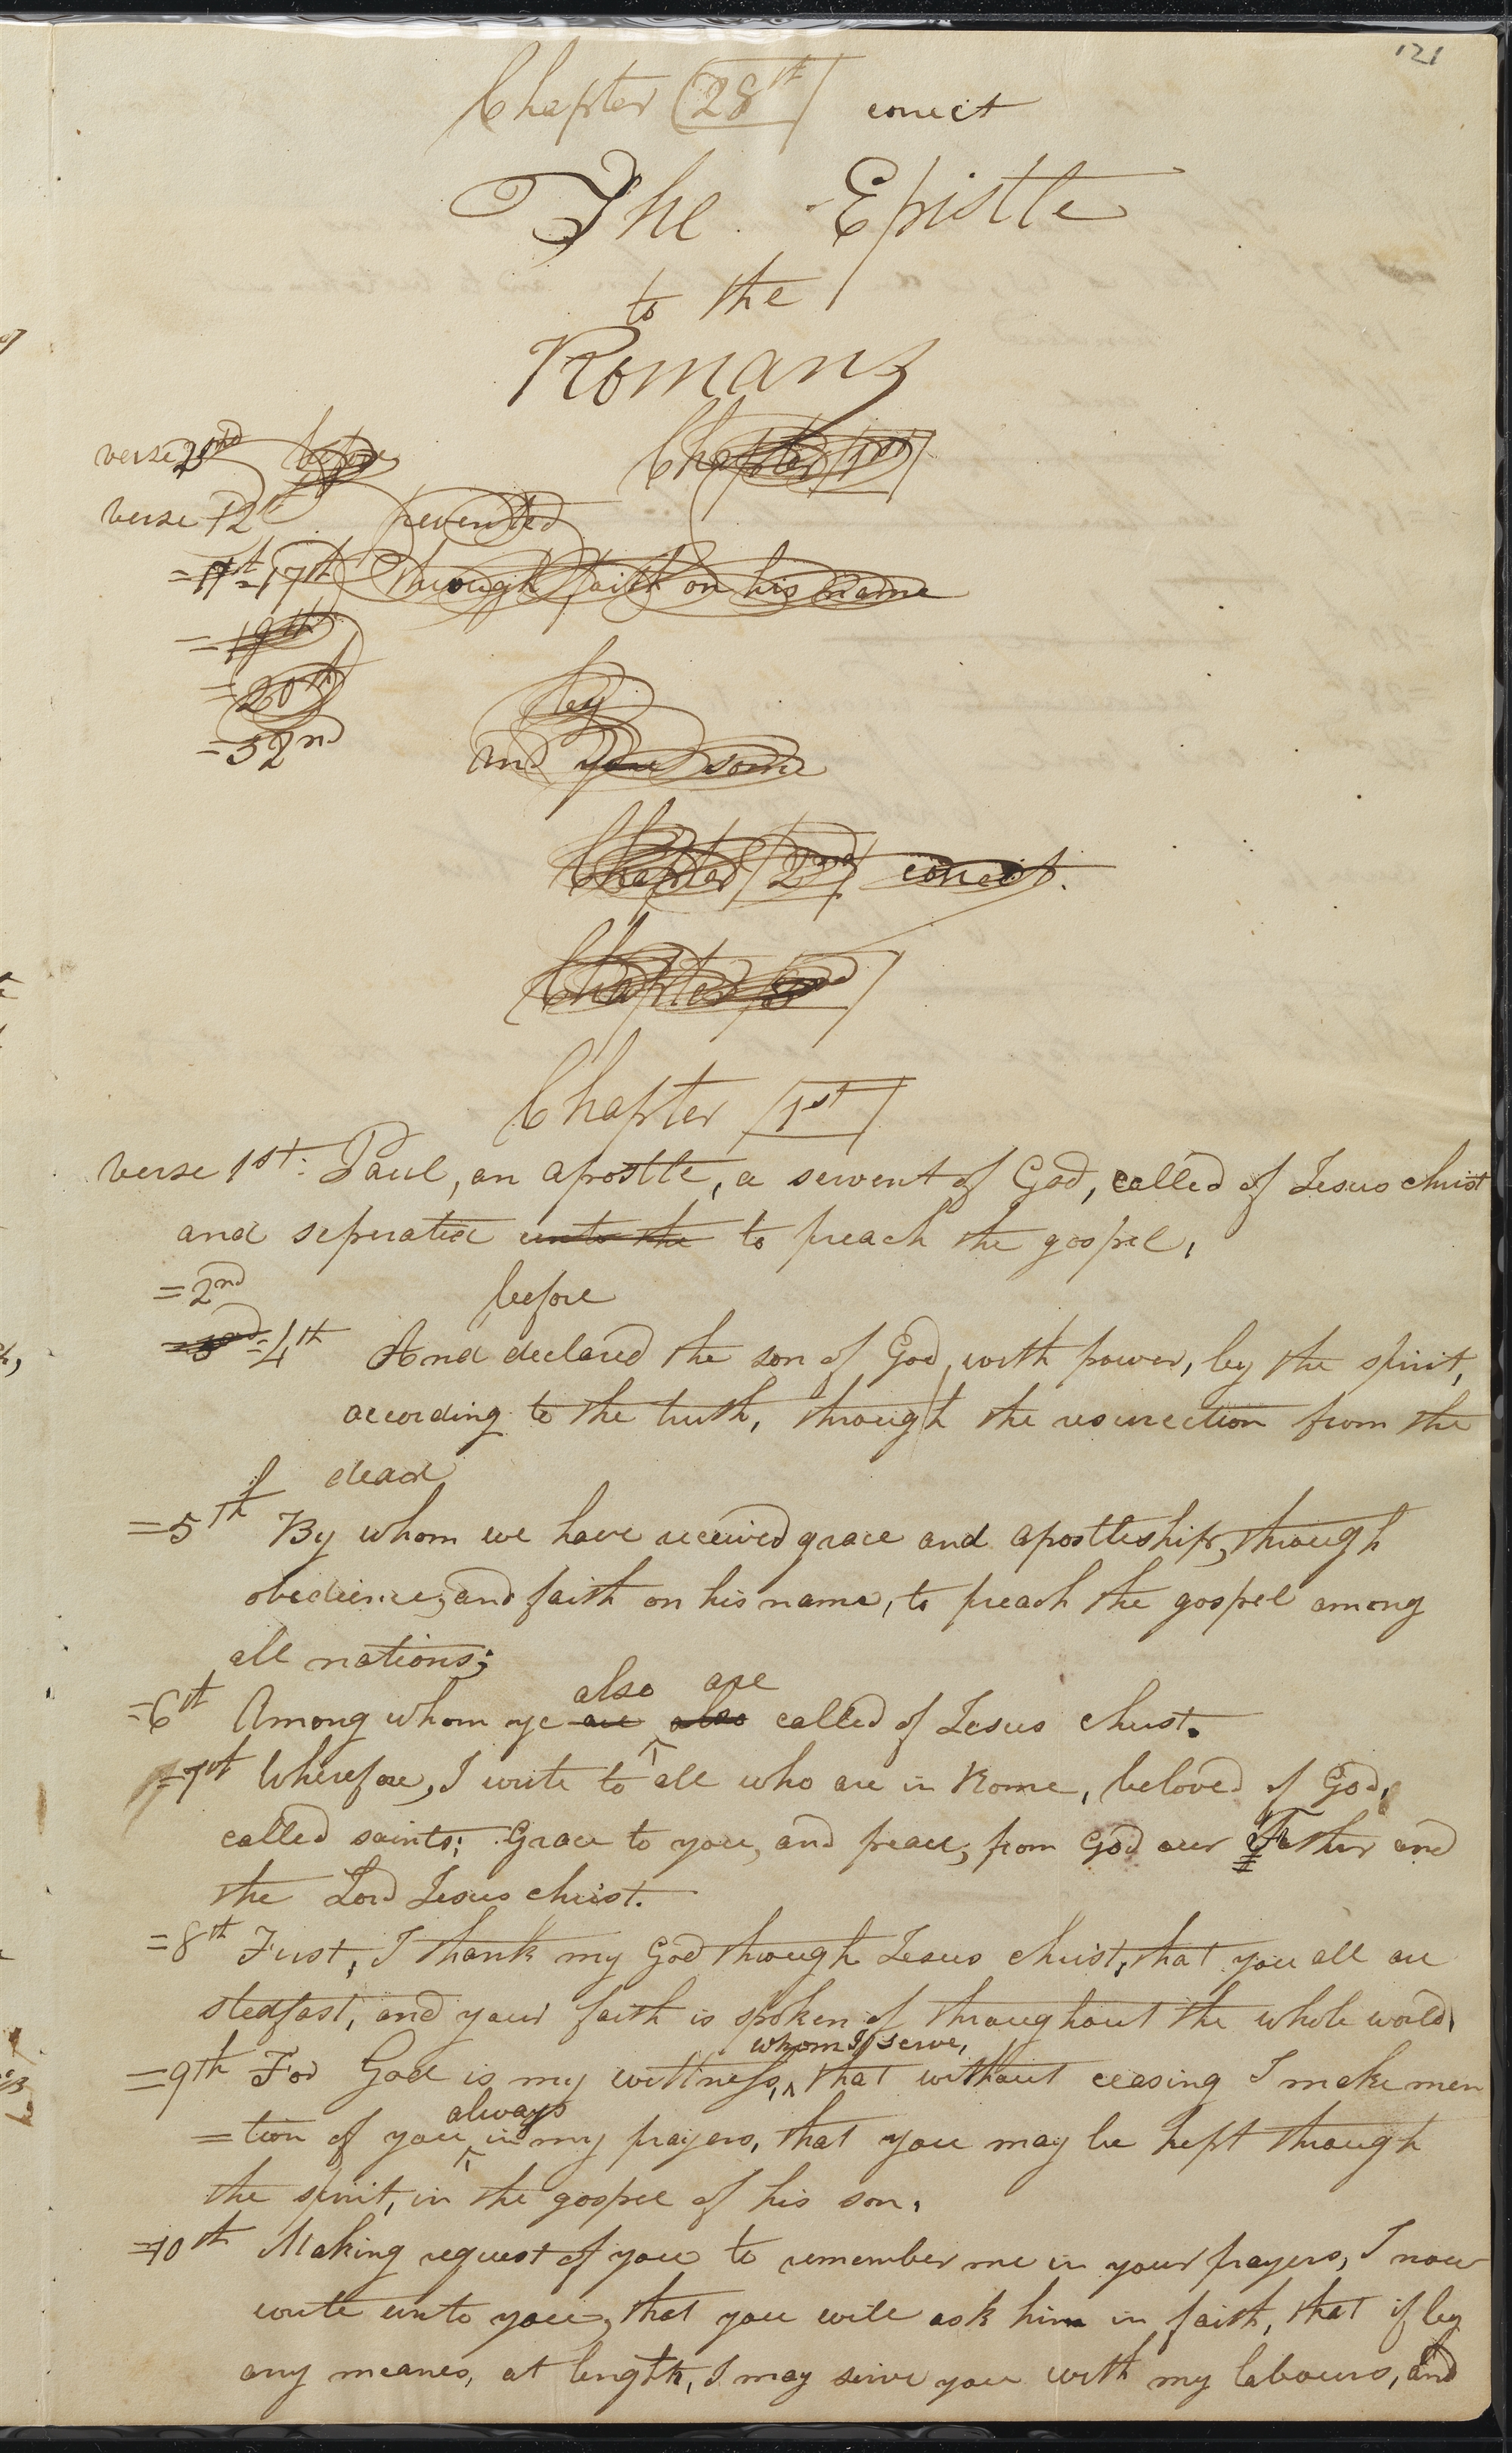 121
Chapter 28th correct
The Epistle
to the
Romans
Chapter 1st
verse 2nd before
verse 12th prevented
=17th through faith on his name
=19th
=20th by
=32nd And some
Chapter 2nd correct.
Chapter
Chapter 1st
verse 1st. Paul, an apostle, a servent of God, called of Jesus christ
and seperated unto the to preach the gospel,
=2nd before
=3rd =4th And declared the son of God, with power, by the spirit,
according to the truth, through the resurrection from the
dead
=5th By whom we have received grace and apostleship, through
obedience, and faith on his name, to preach the gospel among
all nations;
also are
=6th Among whom ye are also called of Jesus christ.
=7th Wherefore, I write to all who are in Rome, beloved of God,
called saints; Grace to you, and peace, from God our Father and
the Lord Jesus christ.
=8th First, I thank my God through Jesus christ, that you all are
stedfast, and your faith is spoken of throughout the whole world,
whom I serve,
=9th For God is my wittness, that without ceasing I make men
always
=tion of you in my prayers, that you may be kept through
the spirit, in the gospel of his son,
=10th Making request of you to remember me in your prayers, I now
write unto you, that you will ask him in faith, that if by
any meanes, at length, I may serve you with my labours, and